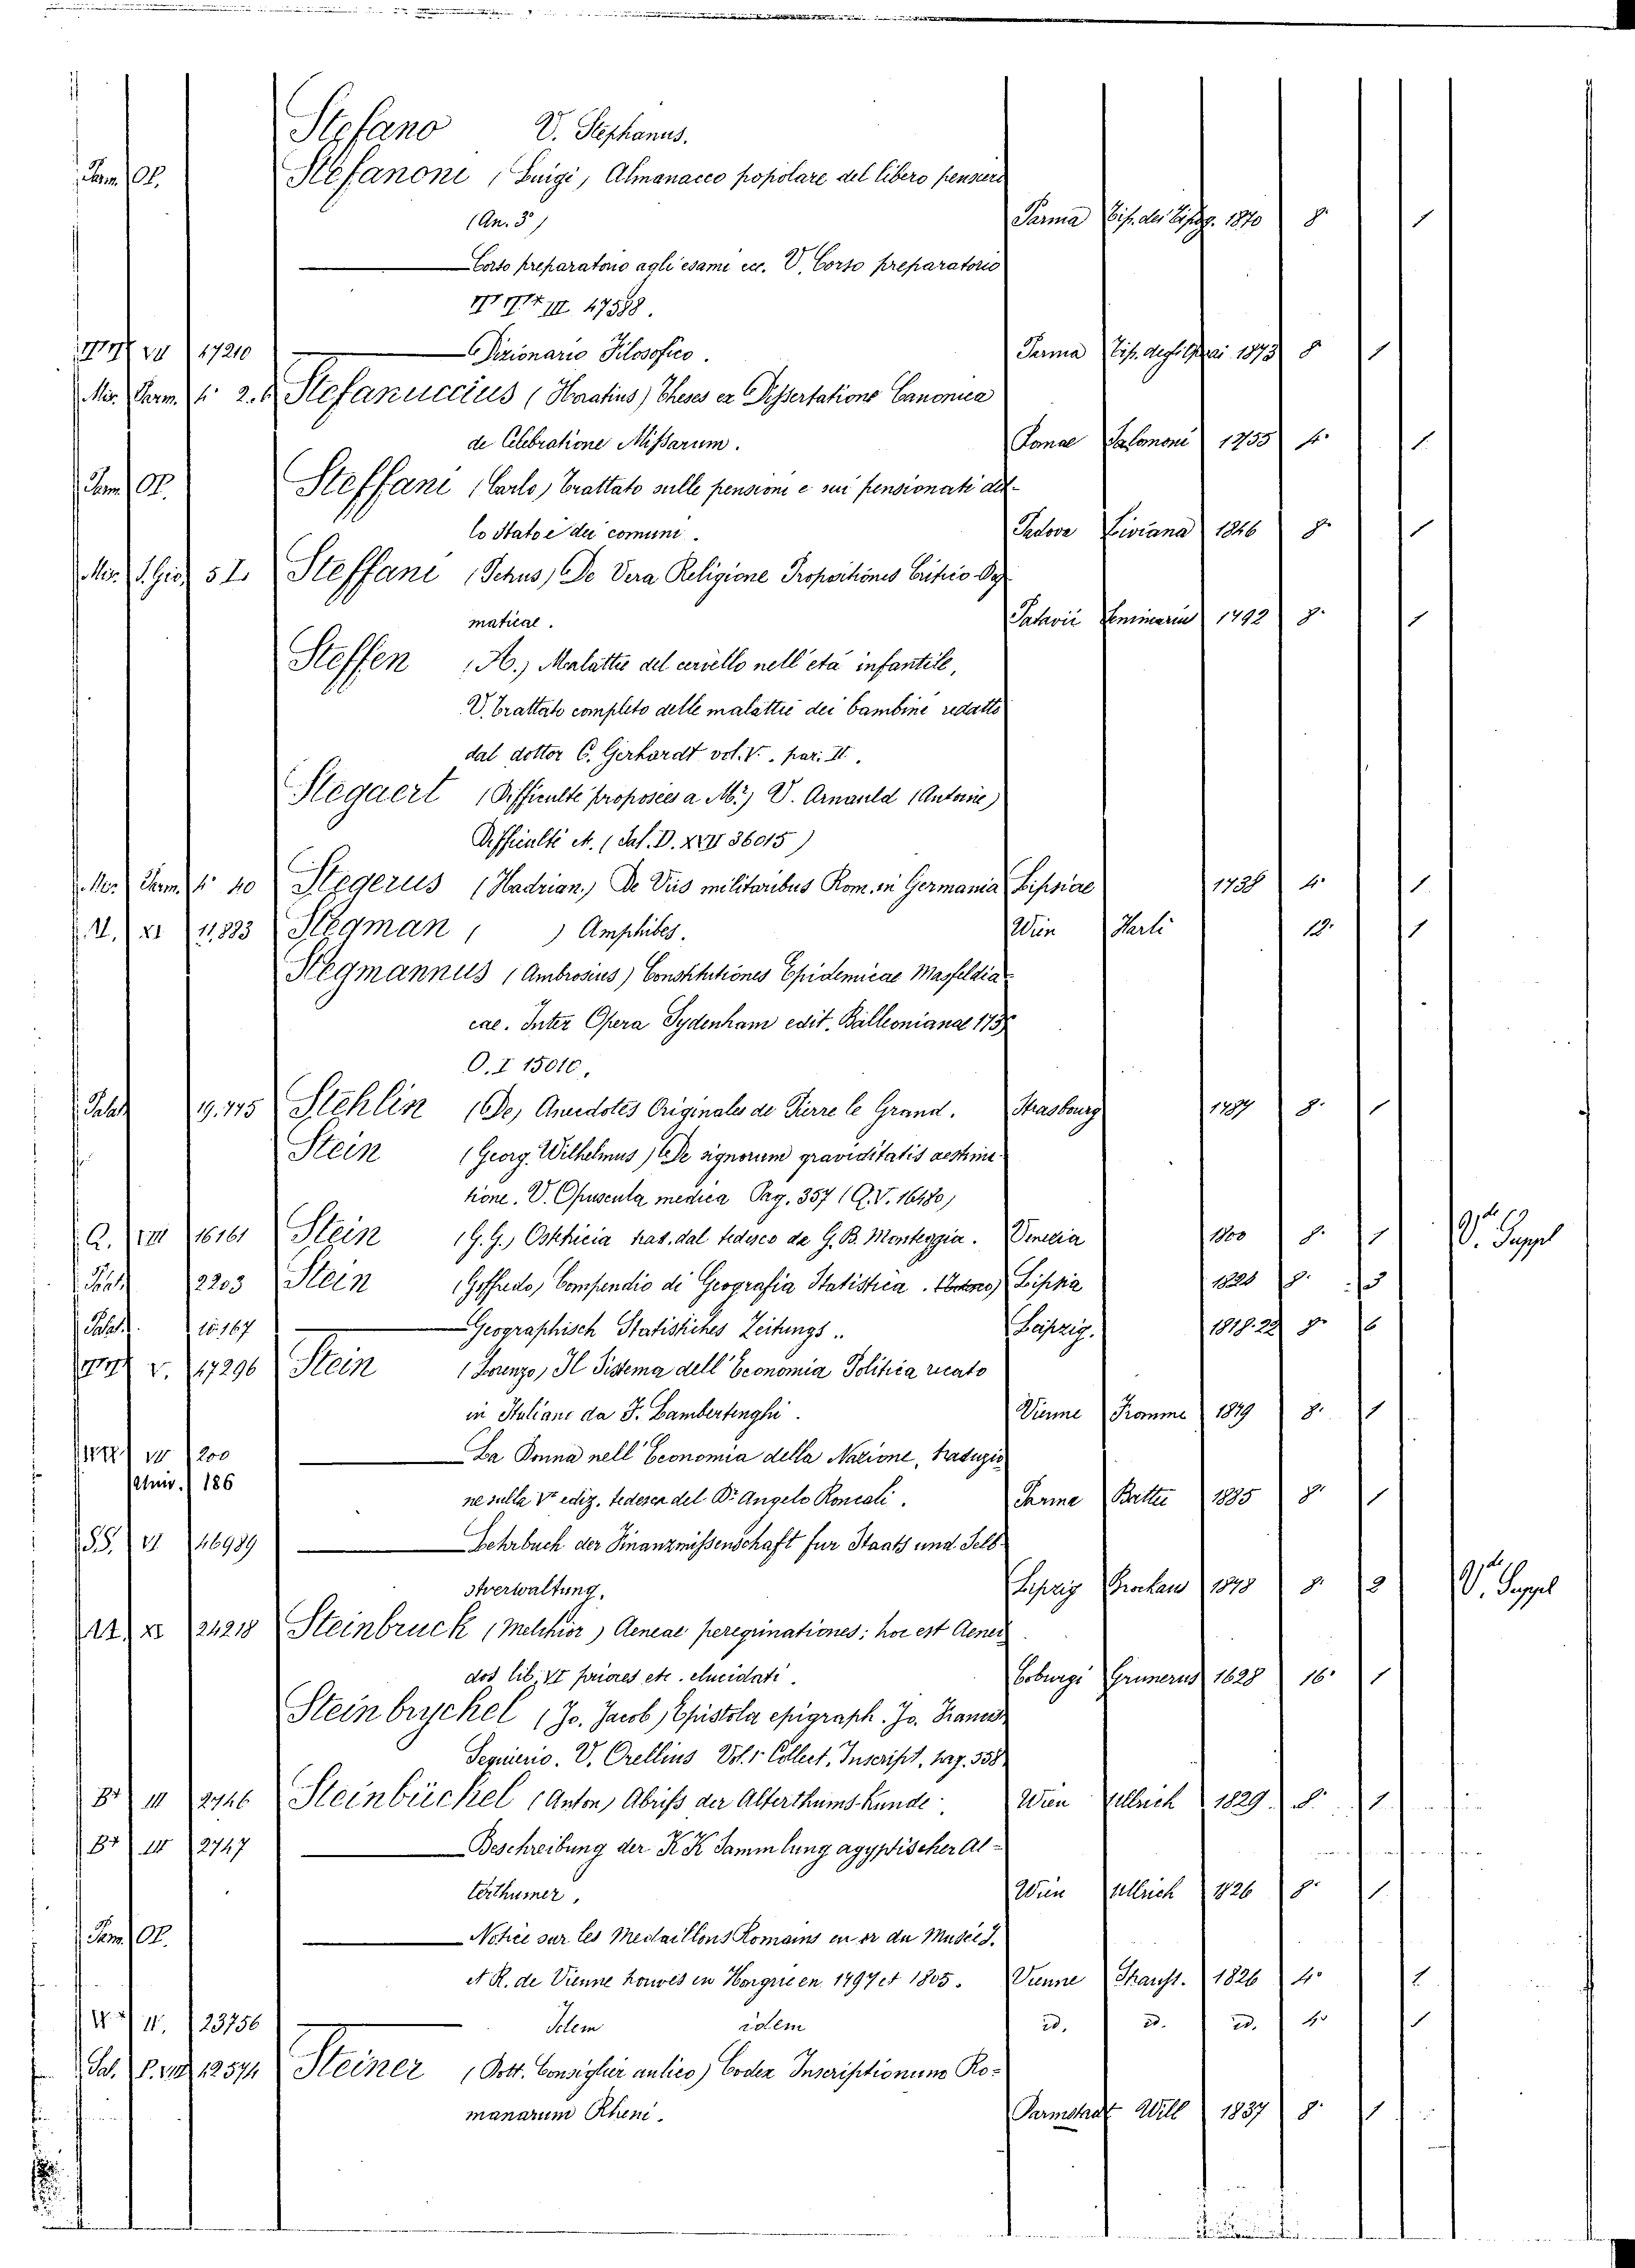 Stefano V. Stephanus.
Stefanoni (Luigi) Almanacco popolare del libero pensiero
(An. 3°) Parma 1870 8° 1
Corso preparatorio agli esami ecc. V. Corso preparatorio
III 47588.
47210 Dizionario Filosofico. Parma 1873 8 1
Stefanuccius (Horatius) Theses ex Dissertatione Canonica
de Celebratione Missarum. Romae Salomoni 1755 4° 1
Steffani (Carlo) Trattato sulle pensioni e sui pensionati del-
lo Stato e dei comuni. Padova Liviana 1846 8° 1
Steffani De Vera Religione Propositiones Critico Dog
maticae. Patavii Seminario 1792 8° 1
Steffen (A.) Malattie del cervello nell'età infantile,
V. Trattato completo delle malattie dei bambini redatto
dal dottor C. Gerhardt vol. V. par. II.
Stegaert (Difficulte proposées a Mr) V. Arnauld (Antoine)
Difficulté et. (Pal. D. XVII 36015)
40 Stegerus (Hadrian.) De Viis militaribus Rom. in Germania Lipsiae 1738 4° 1
XI 11,883 Stegman ( ) Amphibes. Wien Harli 12° 1
Stegmannus (Ambrosius) Constitutiones Epidemicae Masfeldia
cae. Inter Opera Sydenham edit. Balleoniana 173
O. I 15010.
Palat 19.775 Stehlin (De) Anecdotes Originales de Pierre le Grand. Strasbourg 1787 8° 1
Stein (Georg. Wilhelmus) De signorum graviditatis aestima
tione. V. Opuscula medica Pag. 357 (Q. V. 16480)
Q. VIII 16161 Stein (G. G.) Ostetricia trad. dal tedesco da G. B. Monteggia. Venezia 1800 8. 1 V. Suppl
Palat 2203 Stein (Goffredo) Compendio di Geografia Statistica. Lipsia 8. 3
Palat. 18.167 Geographisch Statistiches Zeitungs.. Leipzig. 1818-22 8° 6
V. 47296 Stein (Lorenzo) Il Sistema dell'Economia Politica recato
in Italiano da F. Lambertenghi. Vienne 1879 8. 1
200 La Donna nell'Economia della Nazione, traduzio
Univ. 186
ne sulla Va ediz. tedesca del Dr Angelo Roncali. Parma Battei 1885 8° 1
SS. VI 46989 Lehrbuch der Finanzwissenschaft fur Staats und Selb
stverwaltung. Leipzig Brockaus 1878 8. 2 V. Suppl
XI 24218 Steinbruck (Melchior) Aeneae peregrinationes; hoc est Aenei
dos lib. VI priores etc. elucidati. Coburgi Grunerus 1628 16° 1
Steinbrychel (Jo. Jacob) Epistola epigraph. Jo. Franc
Seguierio. V. Orellius Vol. 1 Collect. Inscript. pag. 558
Bt III 2746 Steinbüchel (Anton) Abriss der Alterthums-Kunde. Wien 1829. 8. 1
Bt III 2747 Beschreibung der K K Sammlung agyptischer Al-
terthumer. Wien 1826 8° 1
Notice sur les Medaillons Romains en or du Musée I.
et R. de Vienne trouvés en Hongrie en 1797 et 1805. Vienne Strauss. 1826 4° 1
II. 23756 Idem idem id. id. id. 4° 1
12574 Steiner (Dott. Consiglier aulico) Codex Inscriptionum Ro-
manarum Rheni. Darmstadt Will 1837 8° 1